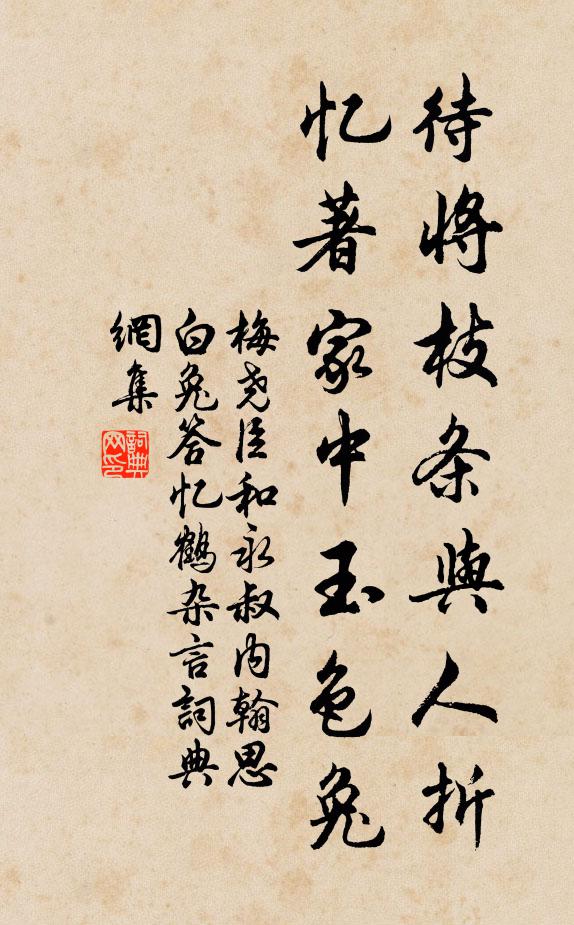 待将枝条与人折
忆著家中玉色兔
梅尧臣和永叔内翰思
白兔答忆鹤杂言詞典
網集
詞典
网印